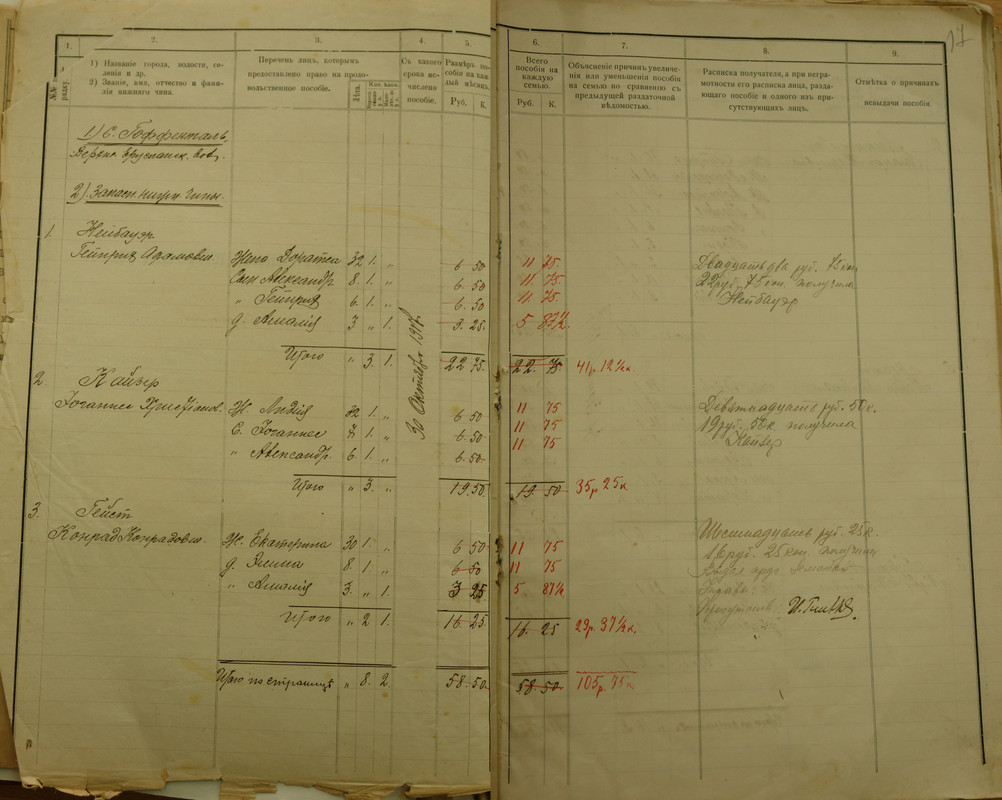 17
1.
2.
3.
4.
5.
6.
7.
8.
9.
№№ порядку.
1) Названіе города, волости, селенія и др.
2) Званіе, имя, отчество и фамилія нижняго чина.
Перечень лицъ, которымъ предоставлено право на продовольственное пособіе.
Лѣта.
Съ какого срока исчислено пособіе.
Размѣръ пособія на каждый мѣсяцъ.
Руб. К.
Всего пособія на каждую семью.
Руб. К.
Объясненіе причинъ увеличенія или уменьшенія пособія на семью по сравненію съ предыдущей раздаточной вѣдомостью.
Расписка получателя, а при неграмотности его росписка лица, раздающаго пособіе и одного изъ присутствующихъ лицъ.
Отмѣтка о причинахъ невыдачи пособія.
1) С. Гоффенталь,
2) Запасн. нижн. чины.
30 Октября 1917.
1. Нейбауэр
Гейнрих Адамович
Жена Доратея 32 1. „ 6 50 11 75. Двадцать два руб. 75 коп
Сын Александр 8 1. „ 6. 50 11 75. 22 руб. 75 коп. получила
„ Гейнрих 6. 1. „ 6. 50 11 75. Нейбауэр
д. Амалія 3 „ 1. 3. 25. 5 87½.
Итого „ 3. 1. 22 75. 22. 75 41 р. 12½ к
2. Кайзер
Іоганнес
Ж. Лидія 32 1. „ 6 50 11 75 Девятнадцать руб. 50 к.
С. Іоганнес 7 1. „ 6. 50 11 75 19 руб. 50 к получила
„ Александр. 6. 1. „ 6. 50 11 75 Кайзер
Итого „ 3. „ 19 50. 19. 50 35 р 25 к
3. Гейст
Конрад Конрадович
Ж. Екатерина 30 1. „ 6 50 11 75 Шестнадцать руб. 25 к.
д. Эмма 8 1. „ 6 50 11 75 16 руб. 25 коп. получил
„ Амалія 3. „ 1. 3 25 5. 87½
Итого „ 2 1. 16 25. 16. 25 29 р. 37½ к.
Итого по страницѣ „ 8. 2. 58. 50. 58. 50. 105 р. 75 к